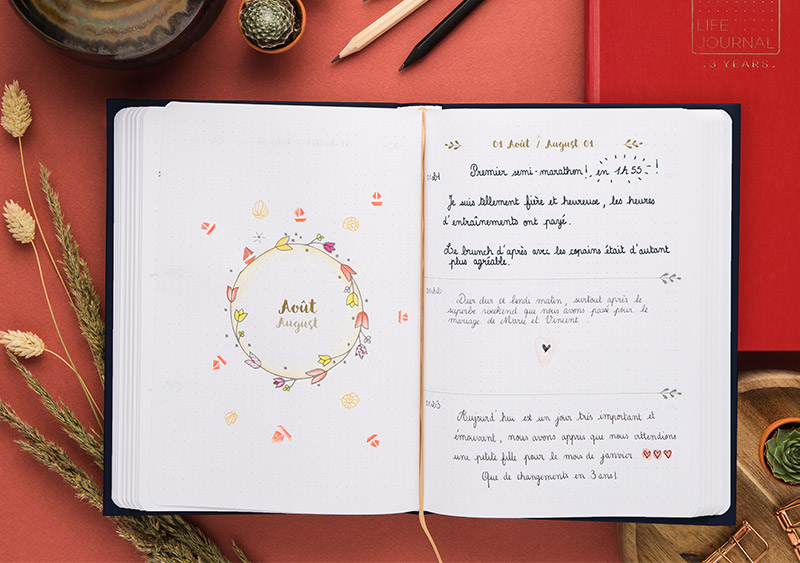 LIFE
JOURNAL
.3 YEARS.
Août
August
01 Août / August 01
2021
Premier semi-marathon! en 1h55 !
Je suis tellement fière et heureuse, les heures
d'entraînements ont payé.
Le brunch d'après avec les copains était d'autant
plus agréable.
2022
Dur dur ce lundi matin, surtout après le
superbe weekend que nous avons passé pour le
mariage de Marie et Vincent
2023
Aujourd'hui est un jour très important et
émouvant, nous avons appris que nous attendions
une petite fille pour le mois de janvier
Que de changements en 3 ans!